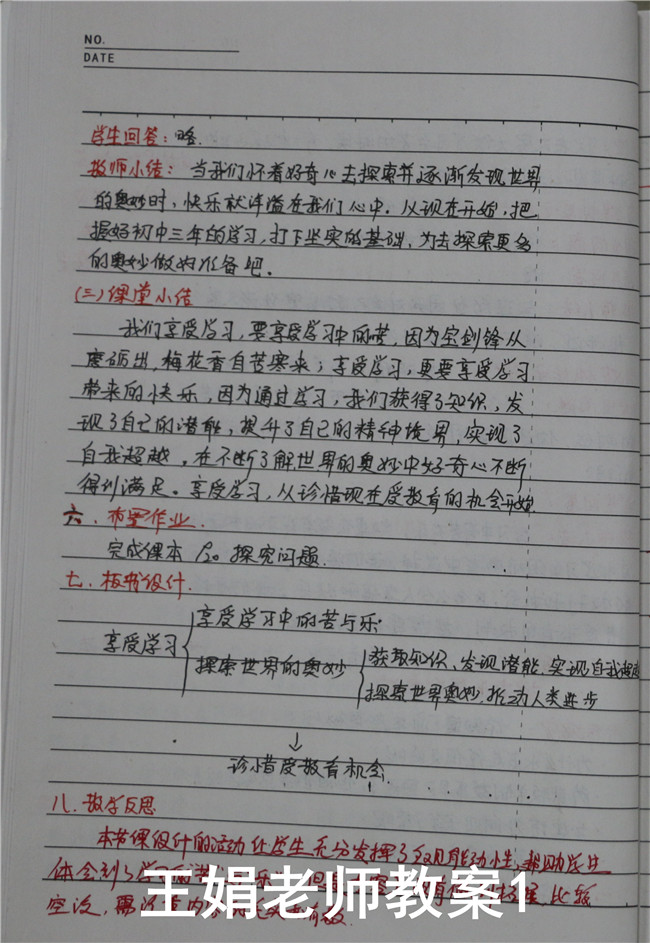 NO.
DATE
学生回答：略.
教师小结：当我们怀着好奇心去探索并逐渐发现世界
的奥妙时，快乐就洋溢在我们心中。从现在开始，把
握好初中三年的学习，打下坚实的基础，为去探索更多
的奥妙做好准备吧。
(三)课堂小结
我们享受学习，要享受学习中的苦，因为宝剑锋从
磨砺出，梅花香自苦寒来；享受学习，更要享受学习
带来的快乐，因为通过学习，我们获得了知识，发
现了自己的潜能，提升了自己的精神境界，实现了
自我超越，在不断了解世界的奥妙中好奇心不断
得到满足。享受学习，从珍惜现在受教育的机会开始
六、布置作业.
完成课本 P20 探究问题.
七、板书设计.
享受学习中的苦与乐
享受学习
探索世界的奥妙
获取知识、发现潜能、实现自我超越
探索世界奥妙，推动人类进步
↓
珍惜受教育机会.
八、教学反思
本节课设计的活动让学生充分发挥了主观能动性，帮助学生
体会到了学习
比较
空泛，需
王娟老师教案1